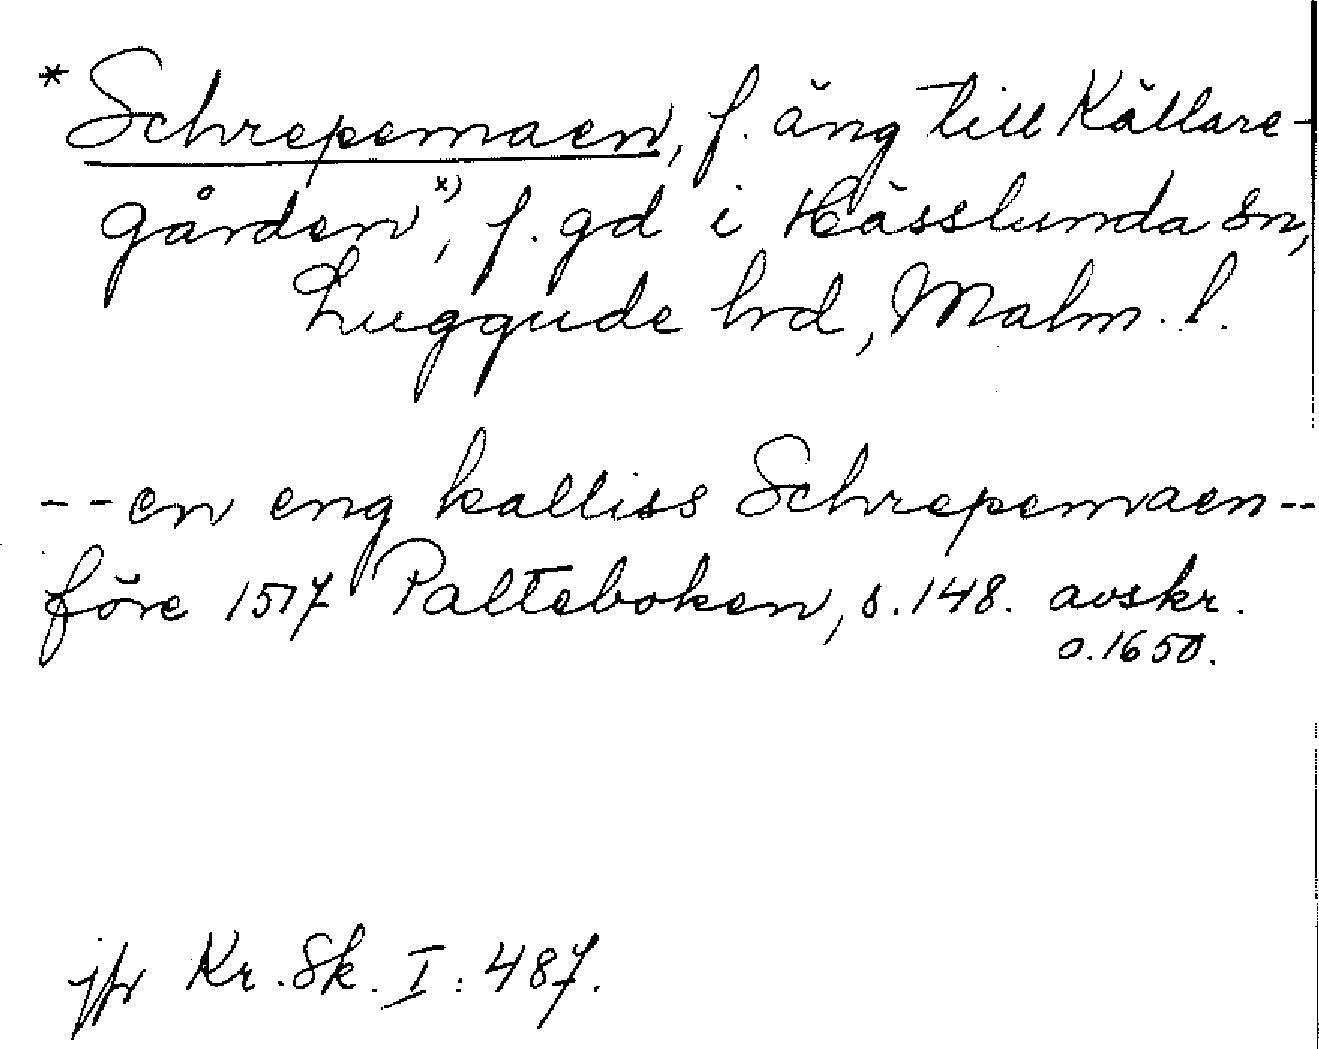 *Schrepemaen, f. äng till Källare-
gården", *) f. gd i Hässlunda sn,
Luggude hd, Malm. l.
-- en eng kalliss Schrepemaen --
före 1517 Palteboken, s. 148. avskr.
o. 1650.
jfr Kr. Sk. I: 487.